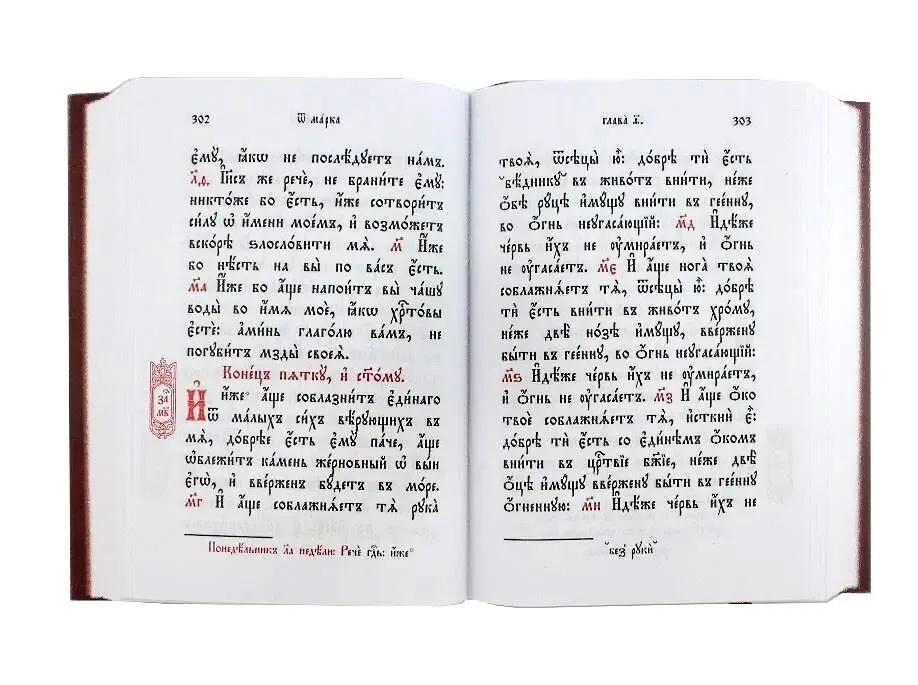 302
Ѿ ма́рка
є҆мꙋ̀, ꙗ҆́кѡ не послѣ́дꙋетъ на́мъ.
л҃ѳ. І҆и҃съ же речѐ, не брани́те є҆мꙋ̀:
никто́же бо є҆́сть, и҆́же сотвори́тъ
си́лꙋ ѡ҆ и҆́мени мое́мъ, и҆ возмо́жетъ
вско́рѣ ѕлосло́вити мѧ̀. м҃ И҆́же
бо нѣ́сть на вы̀ по ва́съ є҆́сть.
м҃а И҆́же бо а҆́ще напои́тъ вы̀ ча́шꙋ
воды̀ во и҆́мѧ моѐ, ꙗ҆́кѡ хрⷭ҇то́вы
є҆стѐ: а҆ми́нь глаго́лю ва́мъ, не
погꙋби́тъ мзды̀ своеѧ̀.
Коне́цъ пѧткꙋ̀, и҆ ст҃о́мꙋ.
И҆ и҆́же* а҆́ще соблазни́тъ є҆ди́наго
ѿ ма́лыхъ си́хъ вѣ́рꙋющихъ въ
мѧ̀, добрѣ́е є҆́сть є҆мꙋ̀ па́че, а҆́ще
ѡ҆блежи́тъ ка́мень же́рновный ѡ҆ вы́и
є҆гѡ̀, и҆ вве́рженъ бꙋ́детъ въ мо́ре.
м҃г И҆ а҆́ще соблажнѧ́етъ тѧ̀ рꙋка̀
за҄
м҃в
Понедѣ́льникъ л҃а недѣ́ли: Речѐ гдⷭ҇ь: и҆́же*
глава̀ ѳ҃.
303
твоѧ̀, ѿсѣцы̀ ю҆̀: добрѣ́е тѝ є҆́сть
бѣ́дникꙋ въ живо́тъ вни́ти, не́же
ѻ҆́бѣ рꙋ́цѣ и҆мꙋ́щꙋ вни́ти въ гее́ннꙋ,
во ѻ҆́гнь неꙋгаса́ющїй: м҃д И҆дѣ́же
че́рвь и҆́хъ не ᲂу҆мира́етъ, и҆ ѻ҆́гнь
не ᲂу҆гаса́етъ. м҃є И҆ а҆́ще нога̀ твоѧ̀
соблажнѧ́етъ тѧ̀, ѿсѣцы̀ ю҆̀: добрѣ́е
тѝ є҆́сть вни́ти въ живо́тъ хро́мꙋ,
не́же двѣ̀ но́зѣ и҆мꙋ́щꙋ, вве́рженꙋ
бы́ти въ гее́ннꙋ, во ѻ҆́гнь неꙋгаса́ющїй:
м҃ѕ И҆дѣ́же че́рвь и҆́хъ не ᲂу҆мира́етъ,
и҆ ѻ҆́гнь не ᲂу҆гаса́етъ. м҃з И҆ а҆́ще ѻ҆́ко
твоѐ соблажнѧ́етъ тѧ̀, и҆сткнѝ є҆̀:
добрѣ́е тѝ є҆́сть со є҆ди́нѣмъ ѻ҆́комъ
вни́ти въ црⷭ҇твїе бж҃їе, не́же двѣ̀
ѻ҆́цѣ и҆мꙋ́щꙋ вве́рженꙋ бы́ти въ гее́ннꙋ
ѻ҆́гненнꙋю: м҃и И҆дѣ́же че́рвь и҆́хъ не
без̾ рꙋкѝ